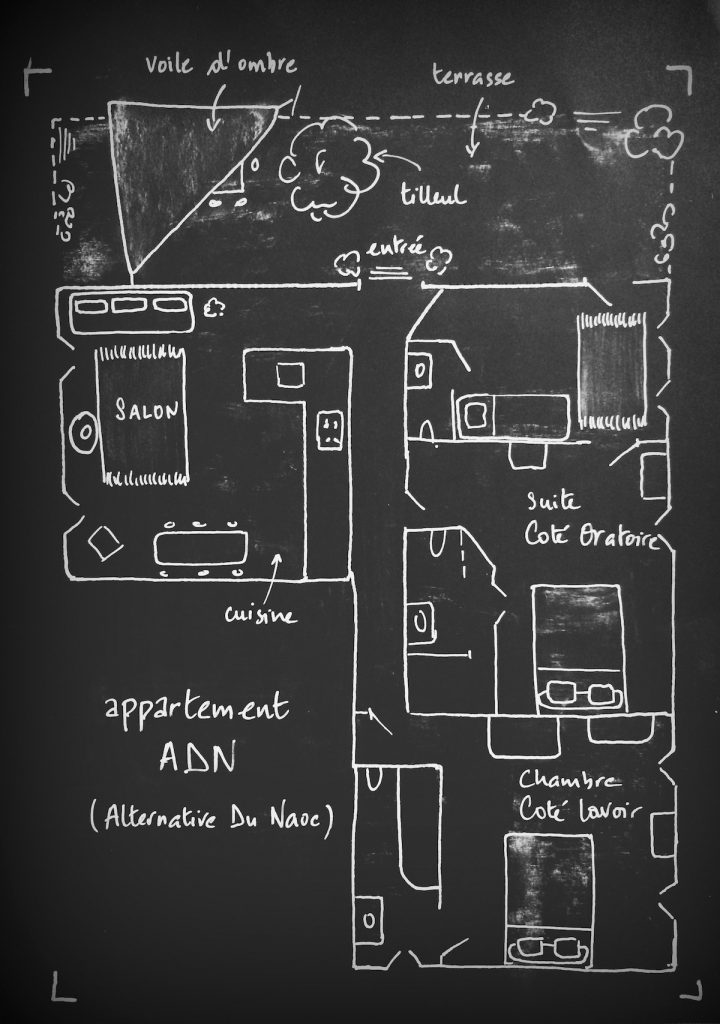 voile d'ombre
terrasse
tilleul
entrée
SALON
Suite
Coté Oratoire
cuisine
appartement
ADN
(Alternative Du Naoc)
Chambre
Coté Lavoir